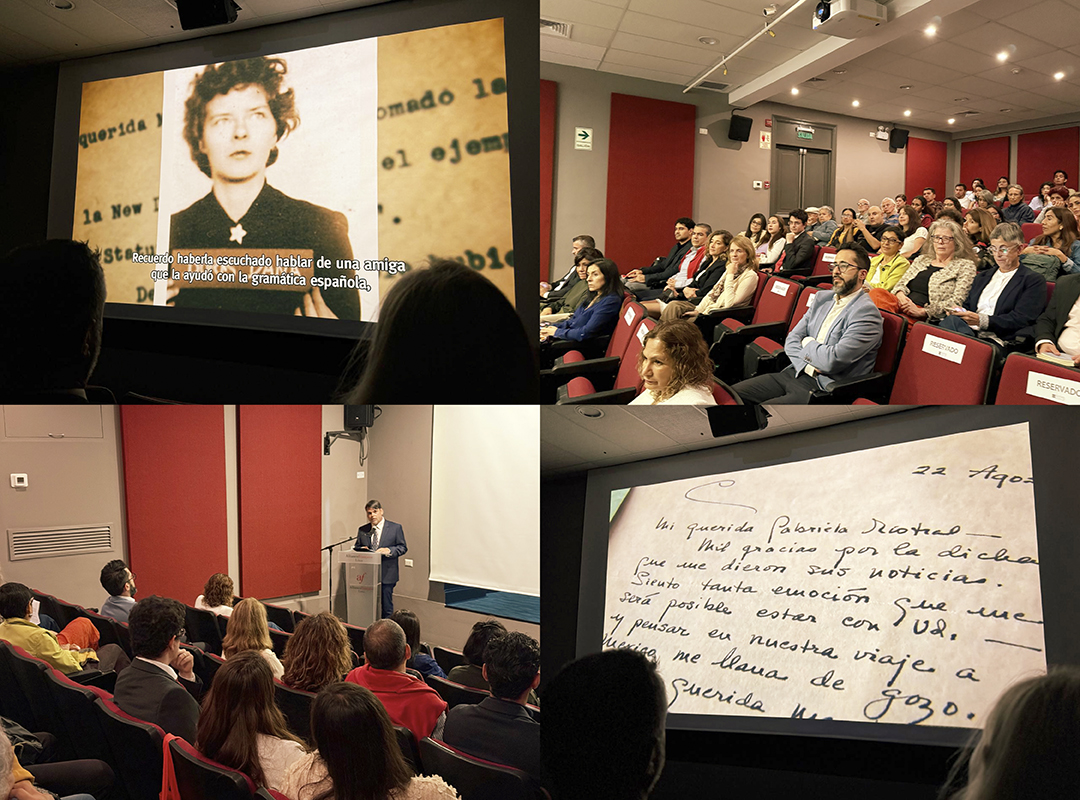 querida
omado la
el ejemp
la New
"Statu
hubie
De
Recuerdo haberla escuchado hablar de una amiga
que la ayudó con la gramática española,
SALIDA
RESERVADO
RESERVADO
22 Ago
Mi querida Gabriela Mistral —
Mil gracias por la dicha
que me dieron sus noticias.
Siento tanta emoción que me
será posible estar con Ud. —
y pensar en nuestra viaje a
me llana de gozo.
Querida